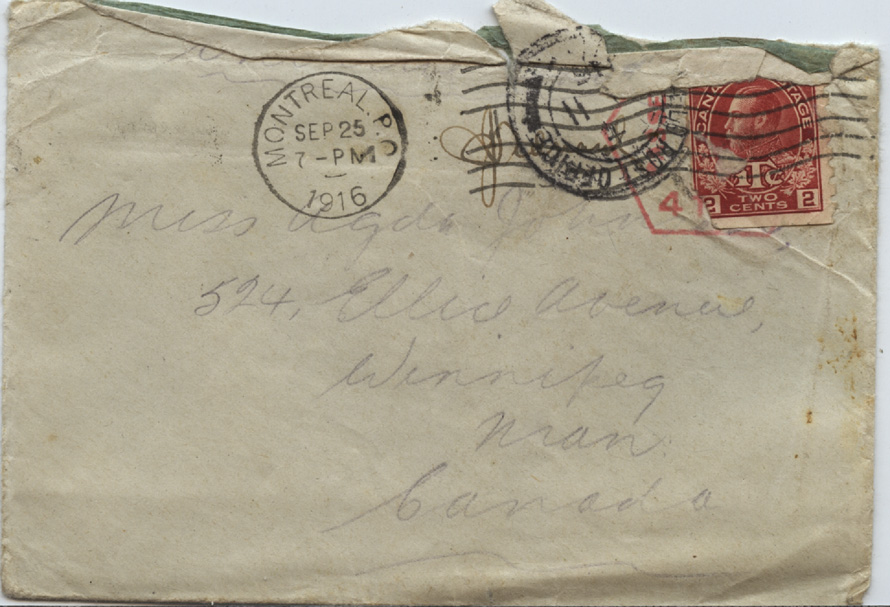 MONTREAL. P.Q
SEP 25
7-PM
1916
POSTAGE
1T¢
2 TWO CENTS 2
4
Miss Agda
524, Ellice Avenue,
Winnipeg
Man
Canada